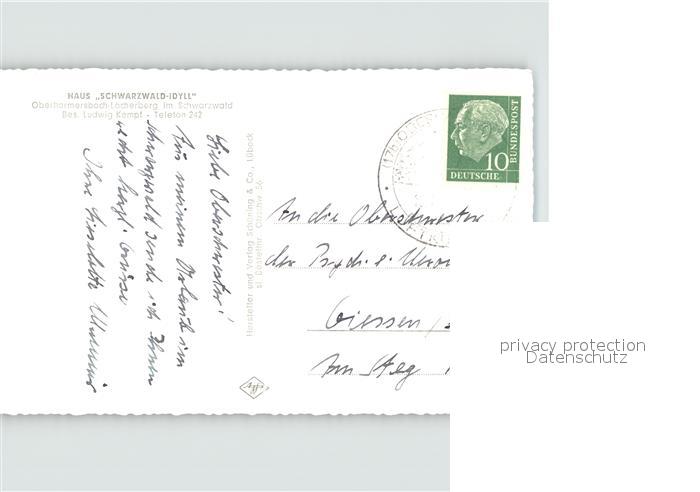 HAUS „SCHWARZWALD-IDYLL"
Oberharmersbach-Löcherberg im Schwarzwald
Bes. Ludwig Kempf - Telefon 242
Liebe Oberschwester!
Aus meinem Urlaub im
Schwarzwald sende ich Ihnen
recht herzl. Grüsse
Ihre Lieselotte
Hersteller und Verlag Schöning & Co., Lübeck
An die Oberschwester
der Psych. u.
Giessen
Am Steg
10
DEUTSCHE
BUNDESPOST
privacy protection
Datenschutz